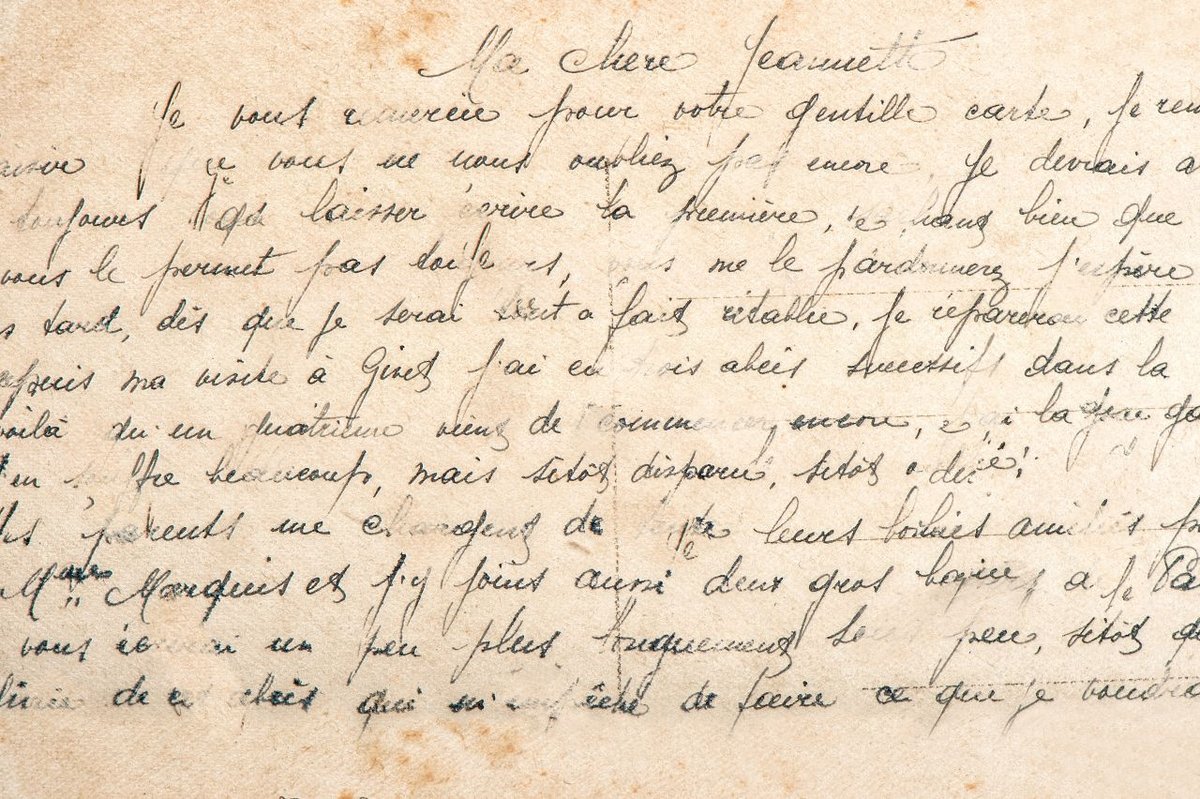 Ma chere Jeannette
Je vous remercie pour votre gentille carte, Je
que vous ne nous oubliez pas encore Je devrais
toujours laisser écrire la première, bien que
vous le permet pas toujours, vous me le pardonnerez j'espère
tard, dès que je serai tout a fait rétablie, Je réparerai cette
ma visite à Givet j'ai eu trois abcès successifs dans la
voilà qu'un quatrième viens de recommencer encore,
en souffre beaucoup, mais sitôt disparu, sitôt
parents me chargent de leurs bonnes amitiés
Marquis et j'y joins aussi deux gros
vous écrirai un peu plus longuement sous peu, sitôt
de ces abcès qui m'empêche de faire ce que je